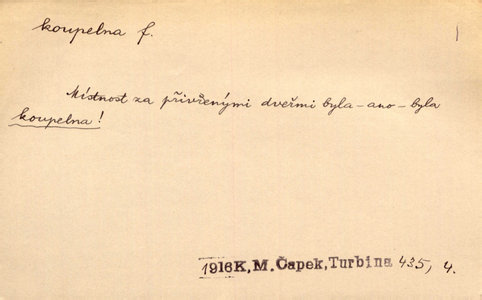 koupelna f.
Místnost za přivřenými dveřmi byla – ano – byla
koupelna!
1916K, M. Čapek, Turbina 435, 4.